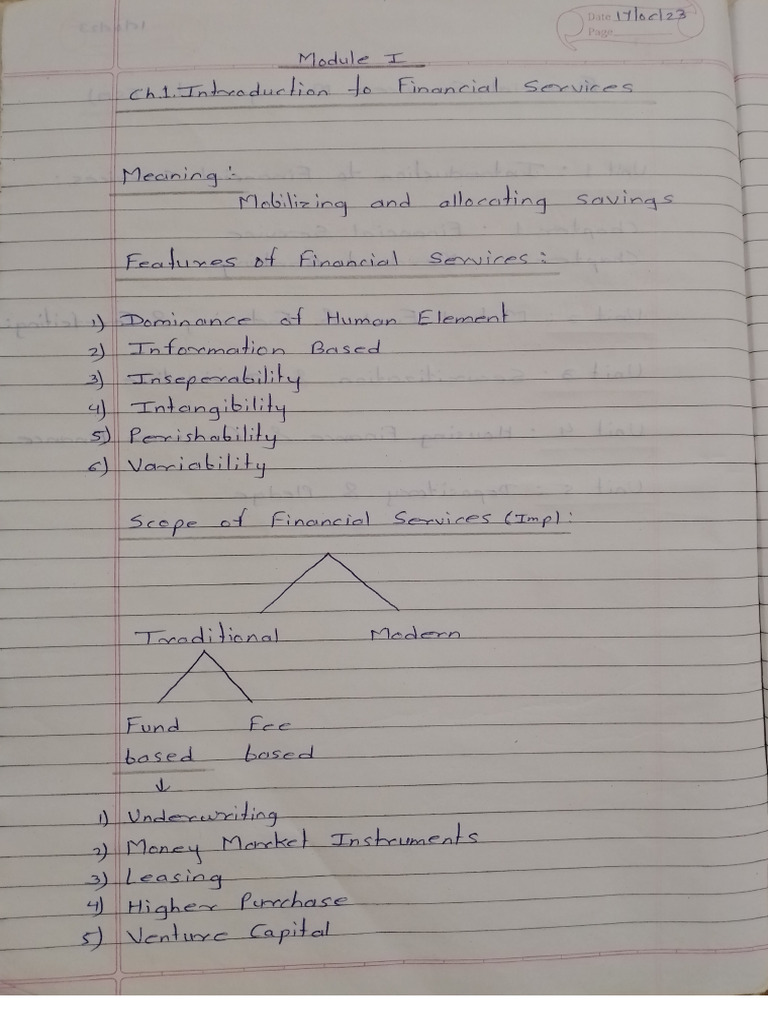 Date 17/06/23
Page
Module I
Ch1. Introduction to Financial Services
Meaning :-
Mobilizing and allocating savings
Features of Financial Services :
1) Dominance of Human Element
2) Information Based
3) Inseperability
4) Intangibility
5) Perishability
6) Variability
Scope of Financial Services (Imp) :
Traditional Modern
Fund Fee
based based
↓
1) Underwriting
2) Money Market Instruments
3) Leasing
4) Higher Purchase
5) Venture Capital